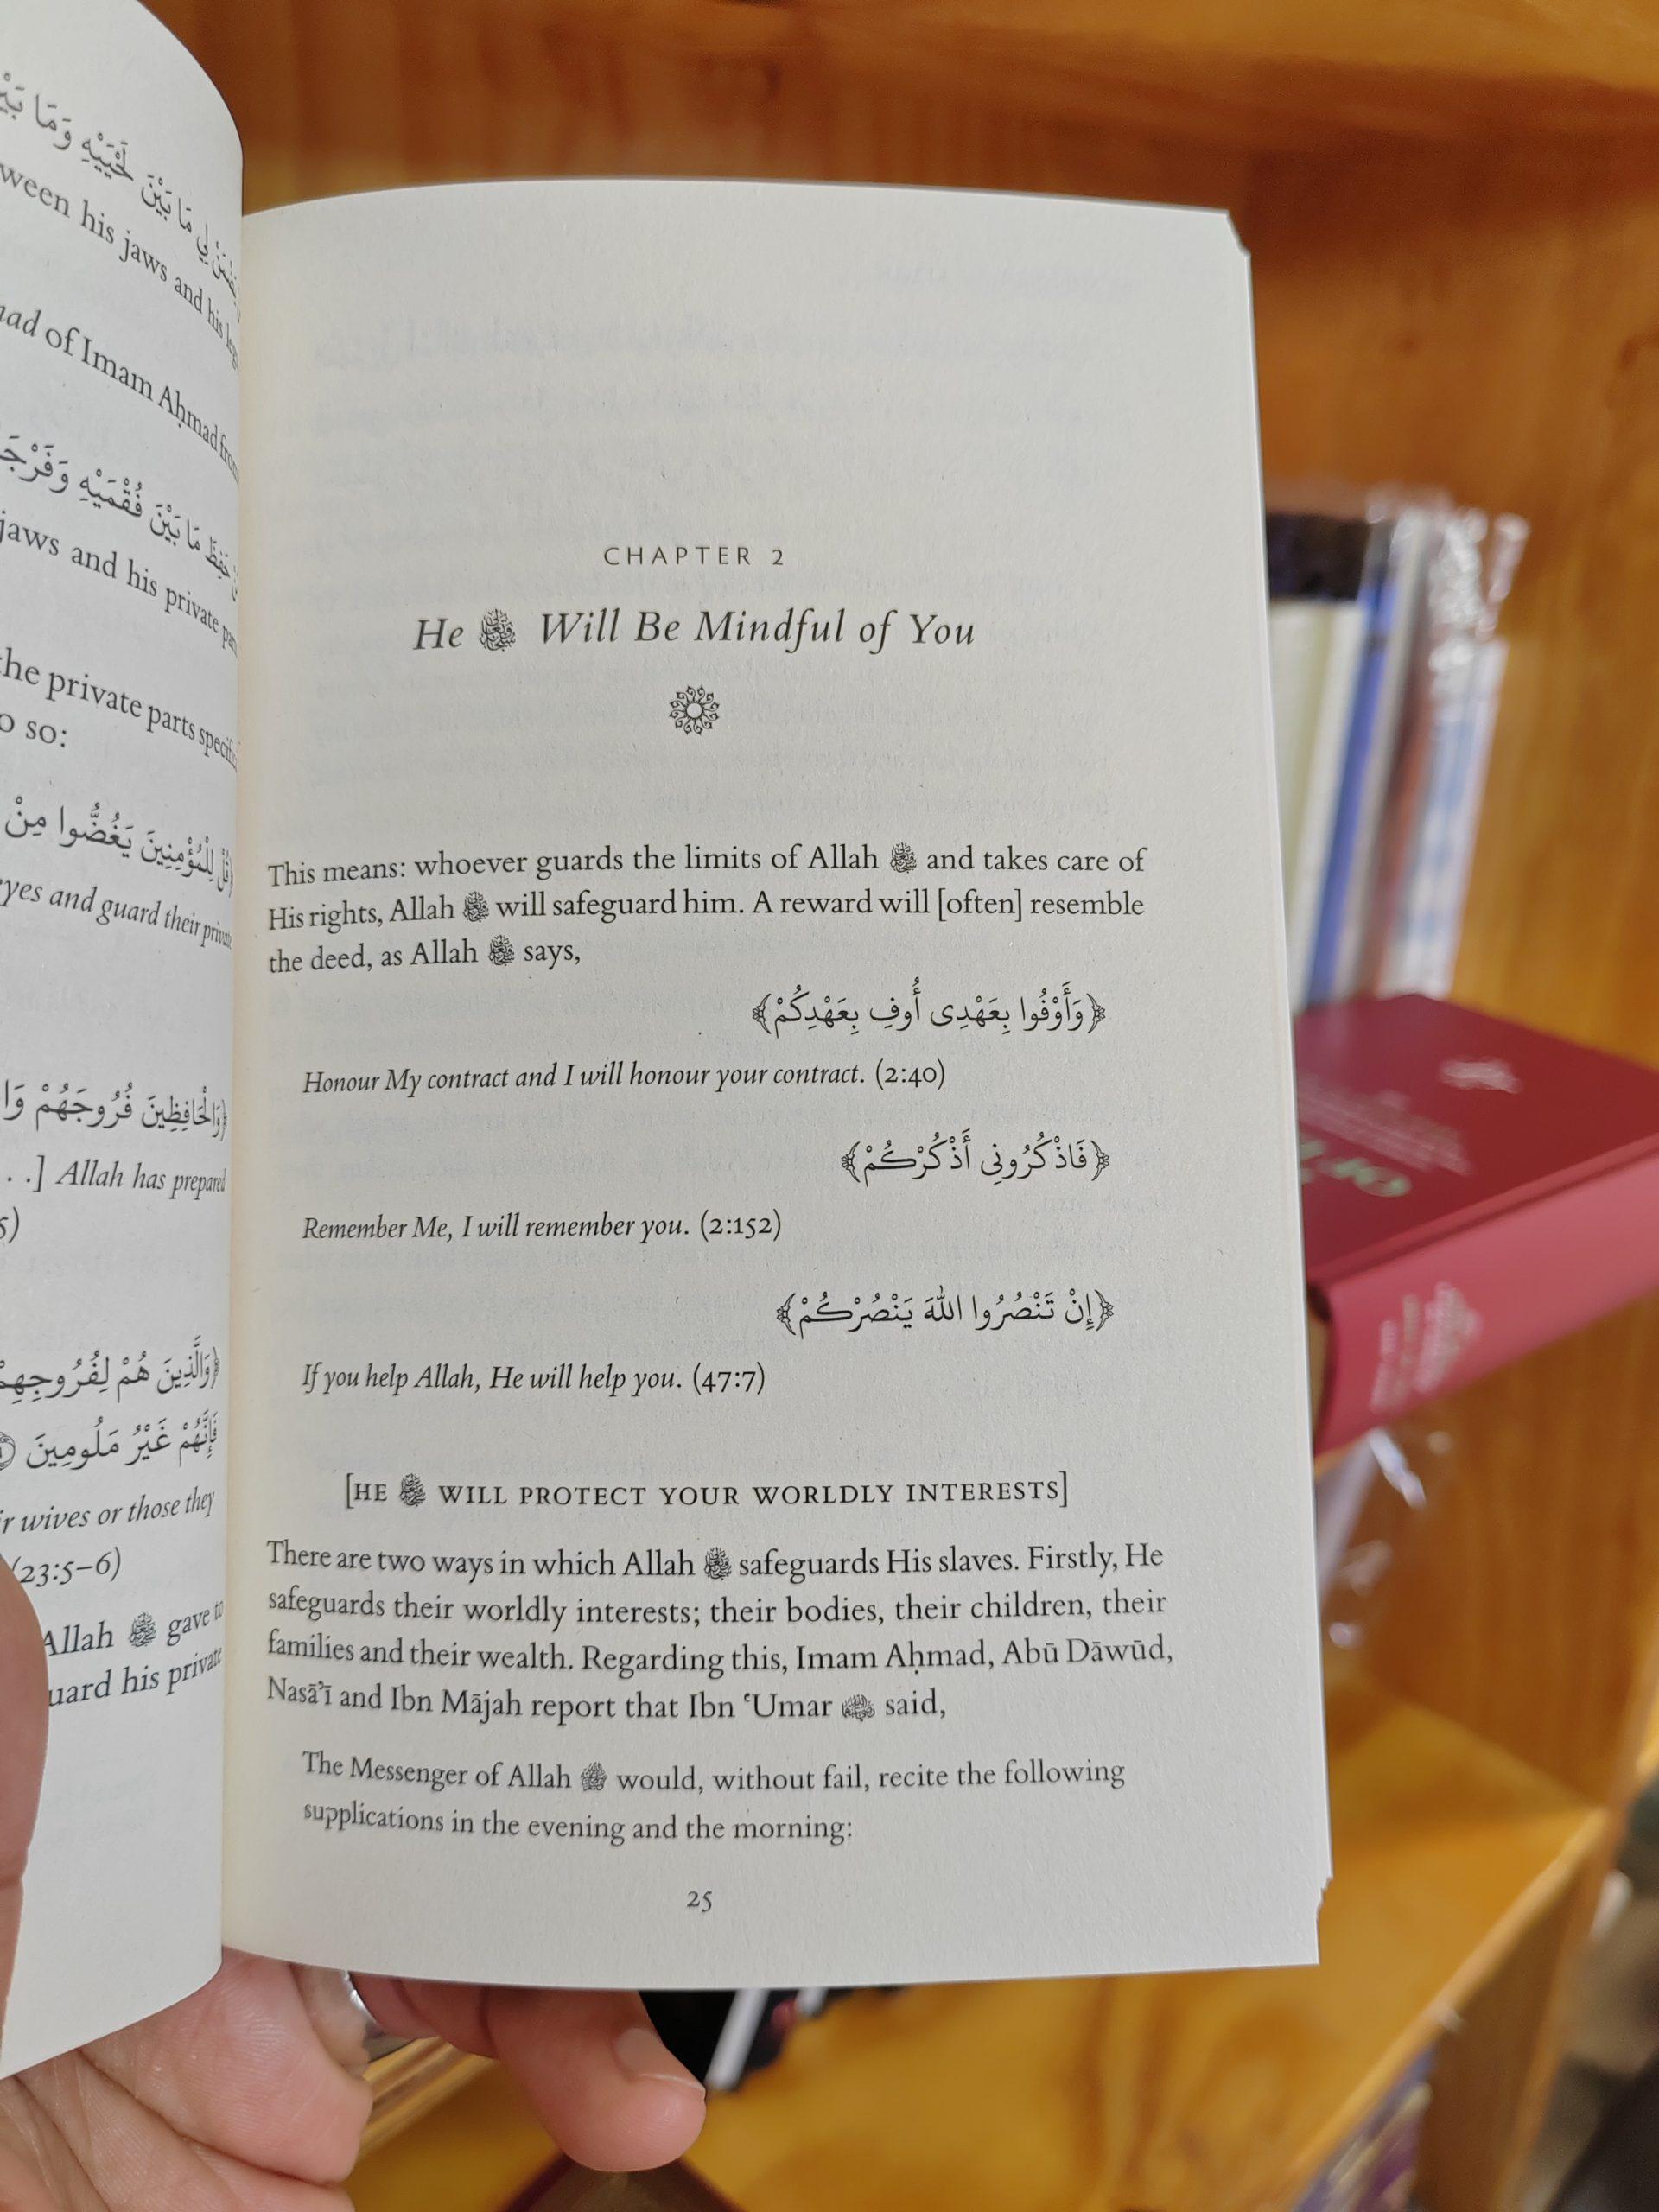 بَيْنَ لَحْيَيْهِ وَمَا
ween his jaws and his
of Imam Aḥmad
مَا بَيْنَ فُقْمَيْهِ
jaws and his private
the private parts
o so:
لِلْمُؤْمِنِينَ يَغُضُّوا مِنْ
yes and guard their
وَالْحَافِظِينَ فُرُوجَهُمْ
. .] Allah has prepared
5)
وَالَّذِينَ هُمْ لِفُرُوجِهِمْ
فَإِنَّهُمْ غَيْرُ مَلُومِينَ
r wives or those they
(23:5–6)
Allah ﷻ gave to
uard his private
CHAPTER 2
He ﷻ Will Be Mindful of You
This means: whoever guards the limits of Allah ﷻ and takes care of
His rights, Allah ﷻ will safeguard him. A reward will [often] resemble
the deed, as Allah ﷻ says,
﴿وَأَوْفُوا بِعَهْدِى أُوفِ بِعَهْدِكُمْ﴾
Honour My contract and I will honour your contract. (2:40)
﴿فَاذْكُرُونِى أَذْكُرْكُمْ﴾
Remember Me, I will remember you. (2:152)
﴿إِنْ تَنْصُرُوا اللهَ يَنْصُرْكُمْ﴾
If you help Allah, He will help you. (47:7)
[HE ﷻ WILL PROTECT YOUR WORLDLY INTERESTS]
There are two ways in which Allah ﷻ safeguards His slaves. Firstly, He
safeguards their worldly interests; their bodies, their children, their
families and their wealth. Regarding this, Imam Aḥmad, Abū Dāwūd,
Nasāʾī and Ibn Mājah report that Ibn ʿUmar said,
The Messenger of Allah ﷺ would, without fail, recite the following
supplications in the evening and the morning:
25